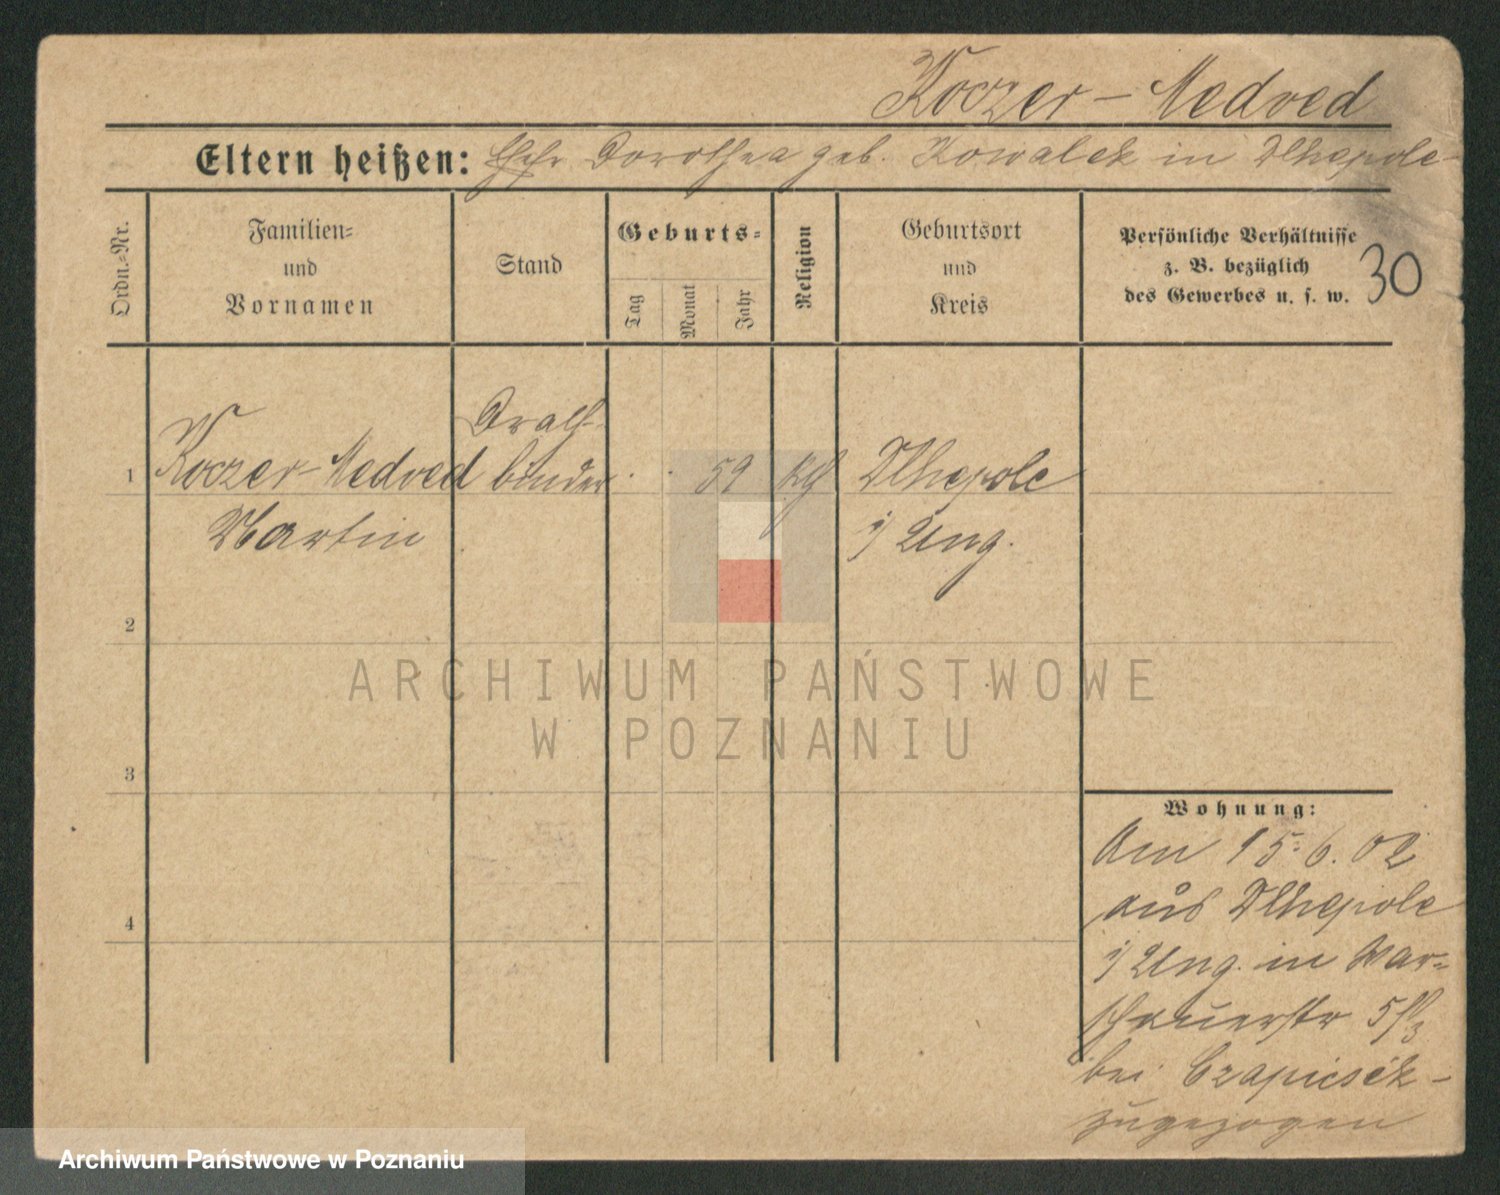 Koczer-Medved
Eltern heißen: Dorothea geb. Kowalek in Dlhepole
Ordn.-Nr.
Familien-
und
Vornamen
Stand
Geburts-
Tag
Monat
Jahr
Religion
Geburtsort
und
Kreis
Persönliche Verhältnisse
z. B. bezüglich
des Gewerbes u. s. w.
30
Draht-
1 Koczer-Medved binder 59 kth Dlhepole
Martin i/ Ung.
2
3
4
Wohnung:
Am 15.6.02
aus Dlhepole
i/ Ung. in War-
schauerstr
bei Czapiesék
zugezogen
ARCHIWUM PAŃSTWOWE
W POZNANIU
Archiwum Państwowe w Poznaniu